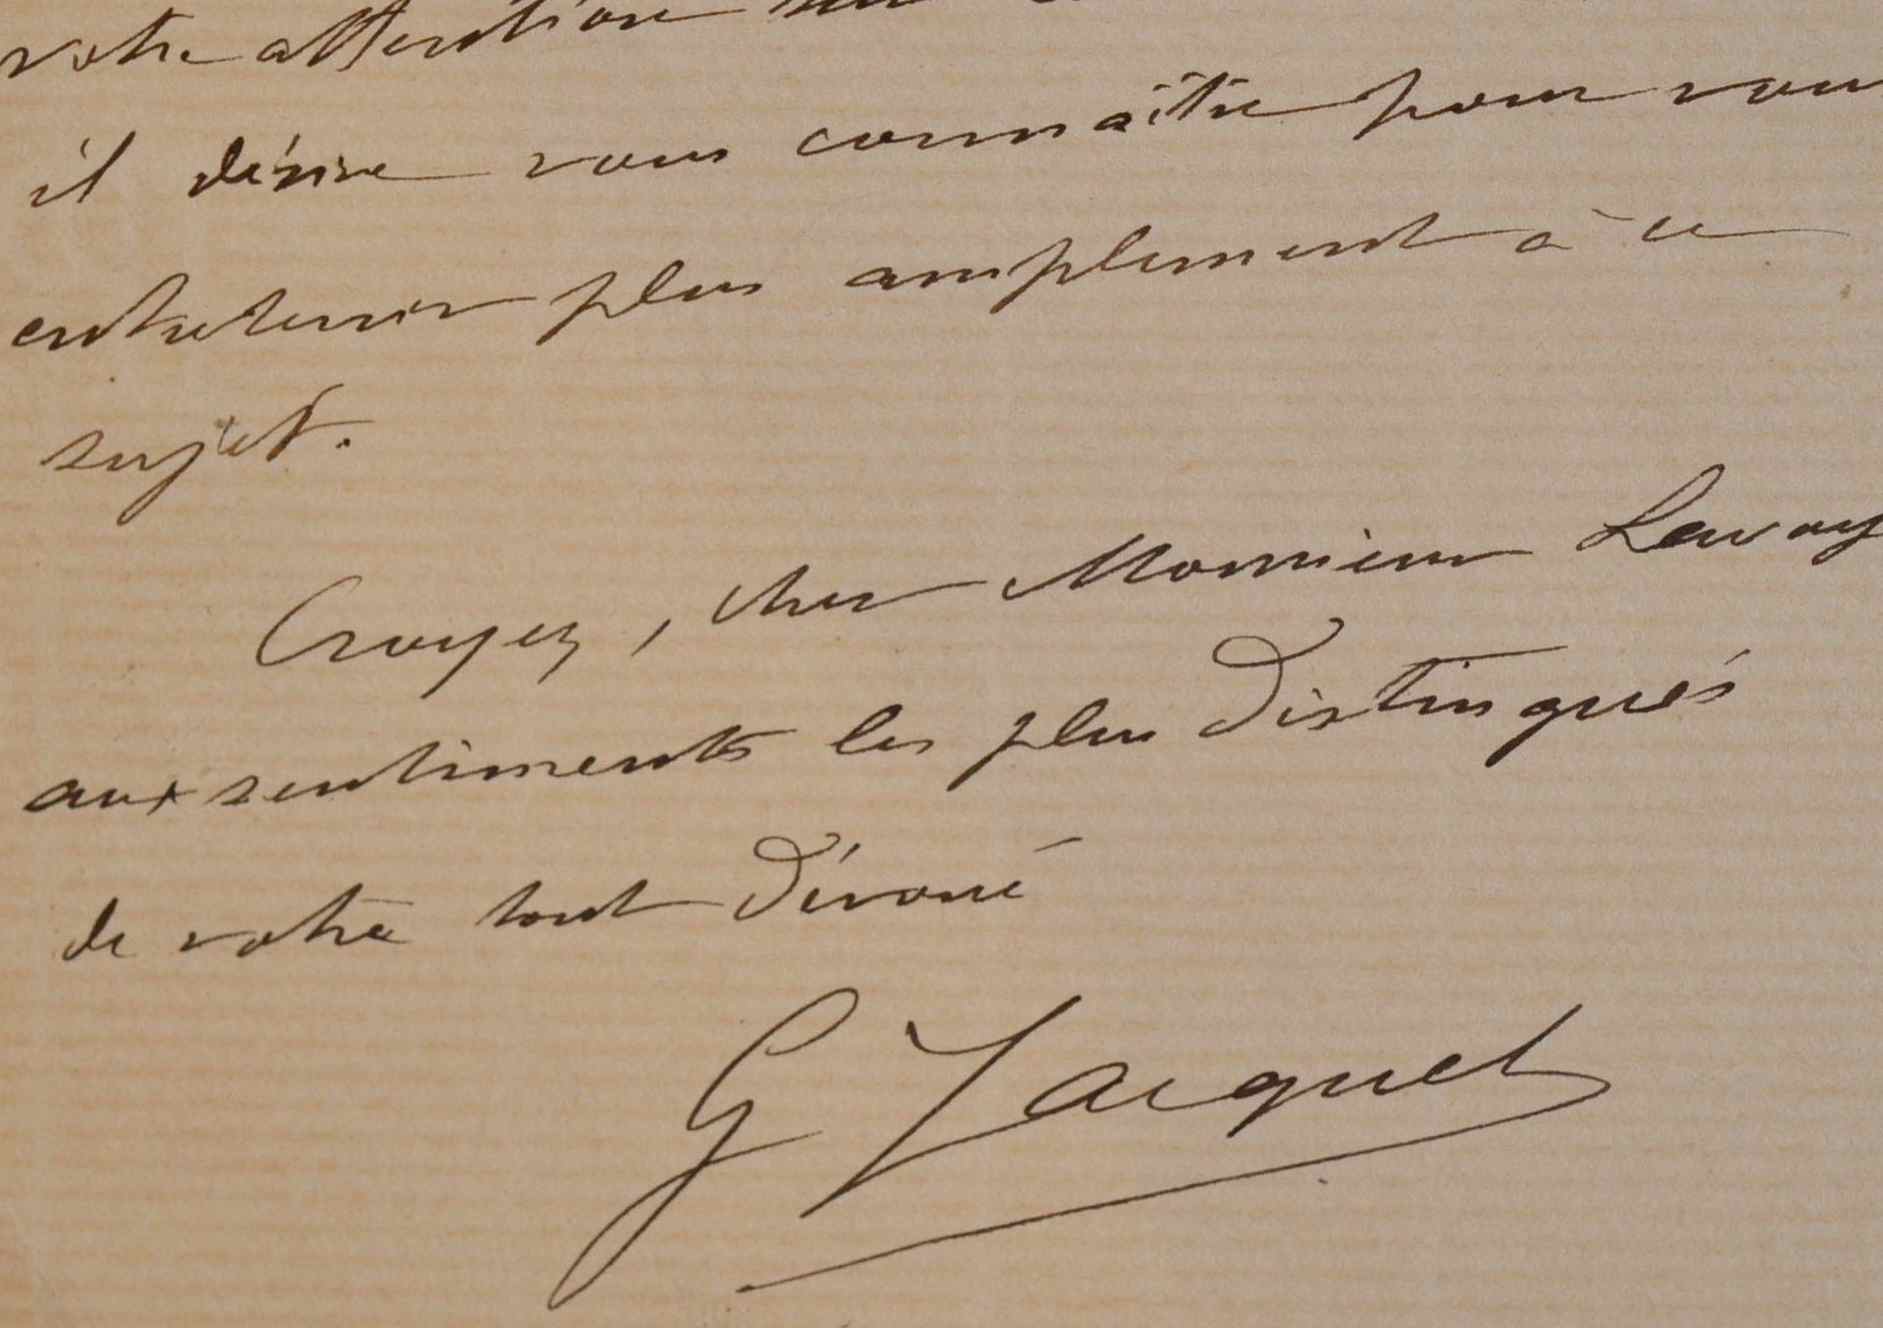 votre attention sur
il désire vous connaître pour vous
entretenir plus amplement à ce
sujet.
Croyez, cher Monsieur
aux sentiments les plus distingués
de votre tout dévoué
G Jacquet